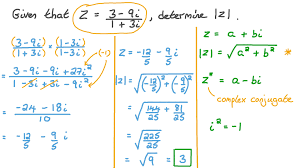 Given that Z = (3-9i)/(1+3i), determine |z|.
(3-9i)/(1+3i) × (1-3i)/(1-3i)
(-1)
= (3-9i-9i+27i²)/(1-3i+3i-9i²)
= (-24-18i)/10
= -12/5 - 9/5 i
Z = -12/5 - 9/5 i
|z| = √((-12/5)²+(-9/5)²)
= √(144/25 + 81/25)
= √(225/25)
= √9 = 3
Z = a + bi
|z| = √(a² + b²) *
Z* = a - bi
complex conjugate
i² = -1